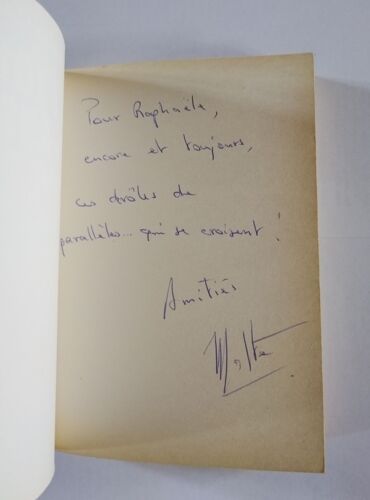 Pour Raphaële,
encore et toujours,
ces drôles de
parallèles... qui se croisent !
Amitiés